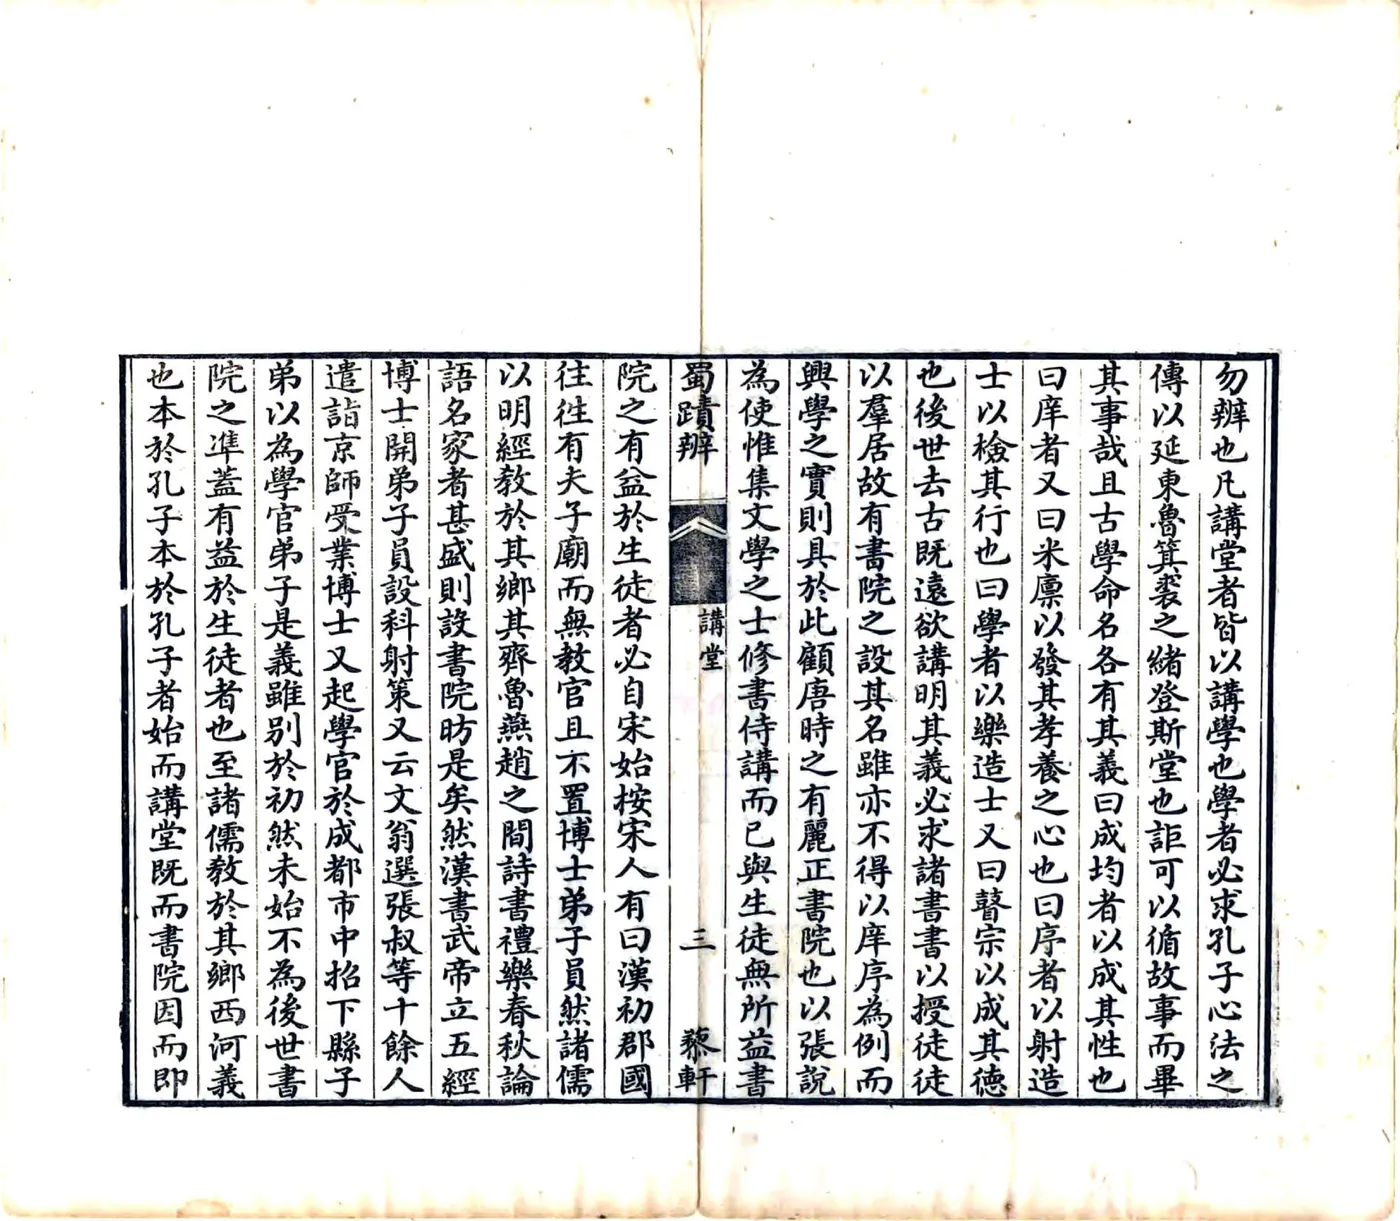 勿辨也凡講堂者皆以講學也學者必求孔子心法之
傳以延東魯箕裘之緒登斯堂也詎可以循故事而畢
其事哉且古學命名各有其義曰成均者以成其性也
曰庠者又曰米廪以發其孝養之心也曰序者以射造
士以檢其行也曰學者以樂造士又曰瞽宗以成其德
也後世去古既遠欲講明其義必求諸書書以授徒徒
以羣居故有書院之設其名雖亦不得以庠序為例而
興學之實則具於此顧唐時之有麗正書院也以張說
為使惟集文學之士修書侍講而已與生徒無所益書
蜀蹟辨
講堂
三
藜軒
院之有益於生徒者必自宋始按宋人有曰漢初郡國
往往有夫子廟而無教官且不置博士弟子員然諸儒
以明經教於其鄉其齊魯燕趙之間詩書禮樂春秋論
語名家者甚盛則設書院昉是矣然漢書武帝立五經
博士開弟子員設科射策又云文翁選張叔等十餘人
遣詣京師受業博士又起學官於成都市中招下縣子
弟以為學官弟子是義雖别於初然未始不為後世書
院之凖蓋有益於生徒者也至諸儒教於其鄉西河義
也本於孔子本於孔子者始而講堂既而書院因而即